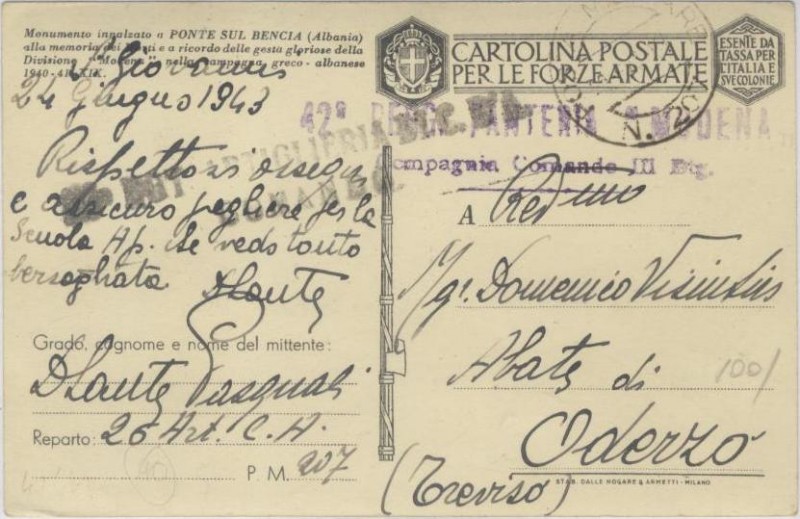 Monumento innalzato a PONTE SUL BENCIA (Albania)
alla memoria dei Morti e a ricordo delle gesta gloriose della
Divisione "Modena" nella campagna greco-albanese
1940-41-XIX.
CARTOLINA POSTALE
PER LE FORZE ARMATE
ESENTE DA
TASSA PER
L'ITALIA E
SVE COLONIE
N. 207
S. Giovanni
24 Giugno 1943
42° REGG. FANTERIA MODENA
Compagnia Comando III Btg.
ARTIGLIERIA
Rispettosi ossequi
e assicuro preghiere per la
Scuola Ap. che vedo tanto
bersagliata
Dante
Grado, cognome e nome del mittente:
Dante Pasquali
Reparto: 26 Art. C.A.
P. M. 207
A Rev.mo
Mgr. Domenico Visintin
Abate di
Oderzo
(Treviso)
100/
STAB. DALLE NOGARE & ARMETTI - MILANO